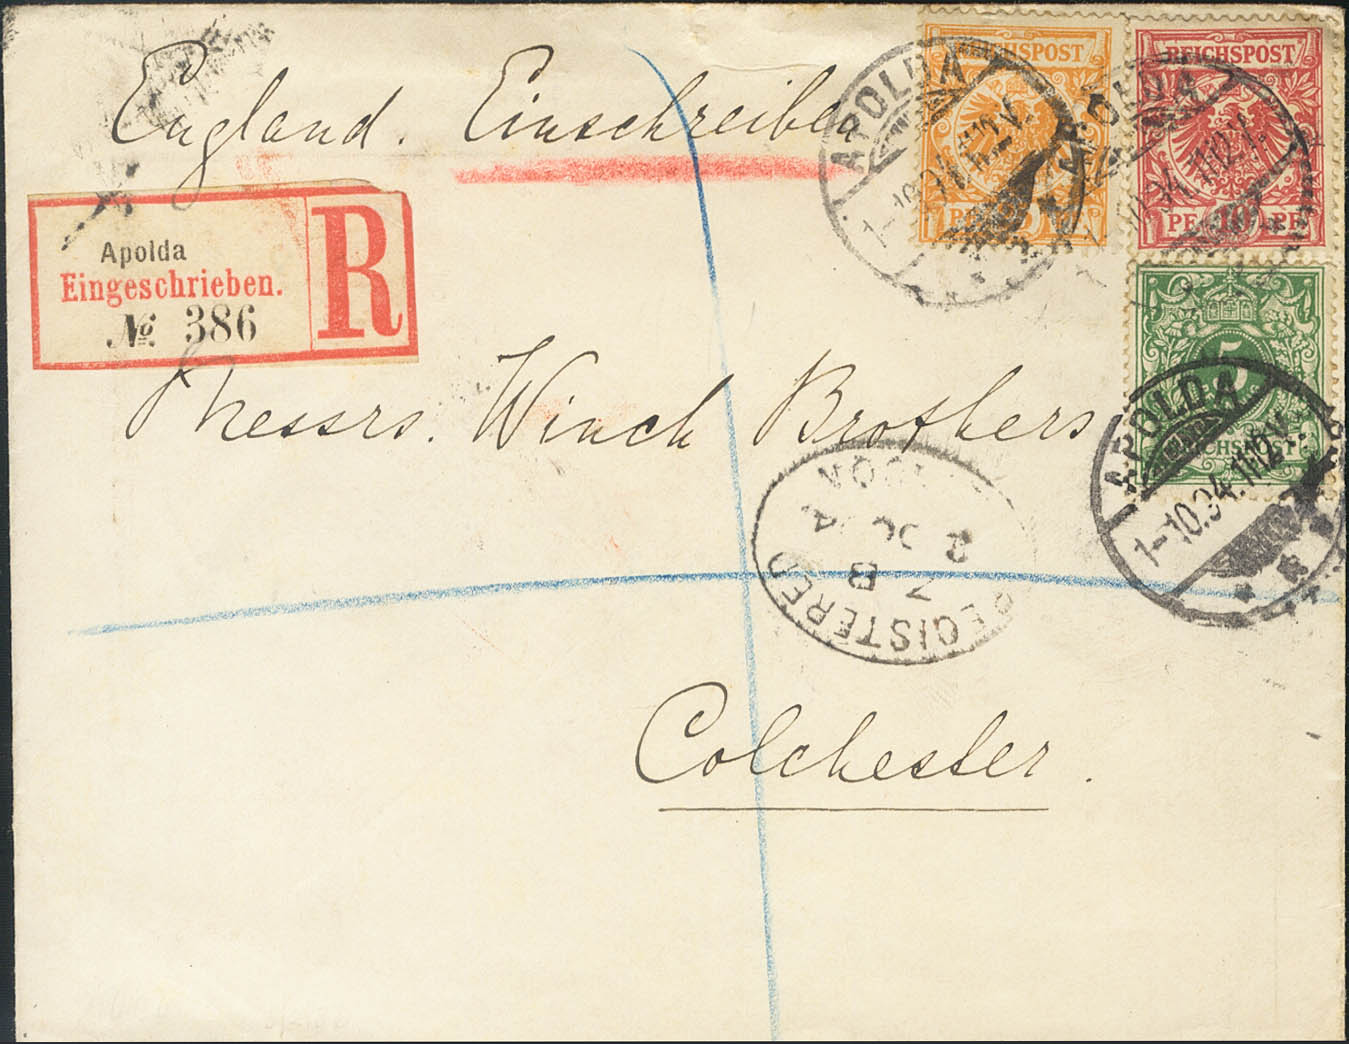 England. Einschreiben
REICHSPOST
REICHSPOST
PF 10 PF
APOLDA
1-10.94.11-12V.
APOLDA
Apolda
Eingeschrieben.
№ 386
R
5
REICHSPOST
APOLDA
1-10.94.11-12V.
Messrs. Winch Brothers
REGISTERED
7 B
2 OC
Colchester.